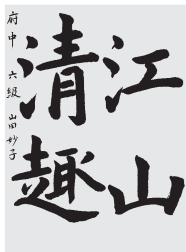 江山
清趣
府中 六級 山田妙子